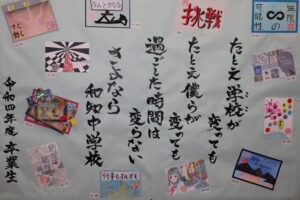 無限の
可能性
∞
挑戦
なんとかなる
すぐ
動く
たとえ学校が
変っても
たとえ僕らが
変っても
過ごした時間は
変らない
さよなら
和知中学校
令和四年度 卒業生
何事も挑戦